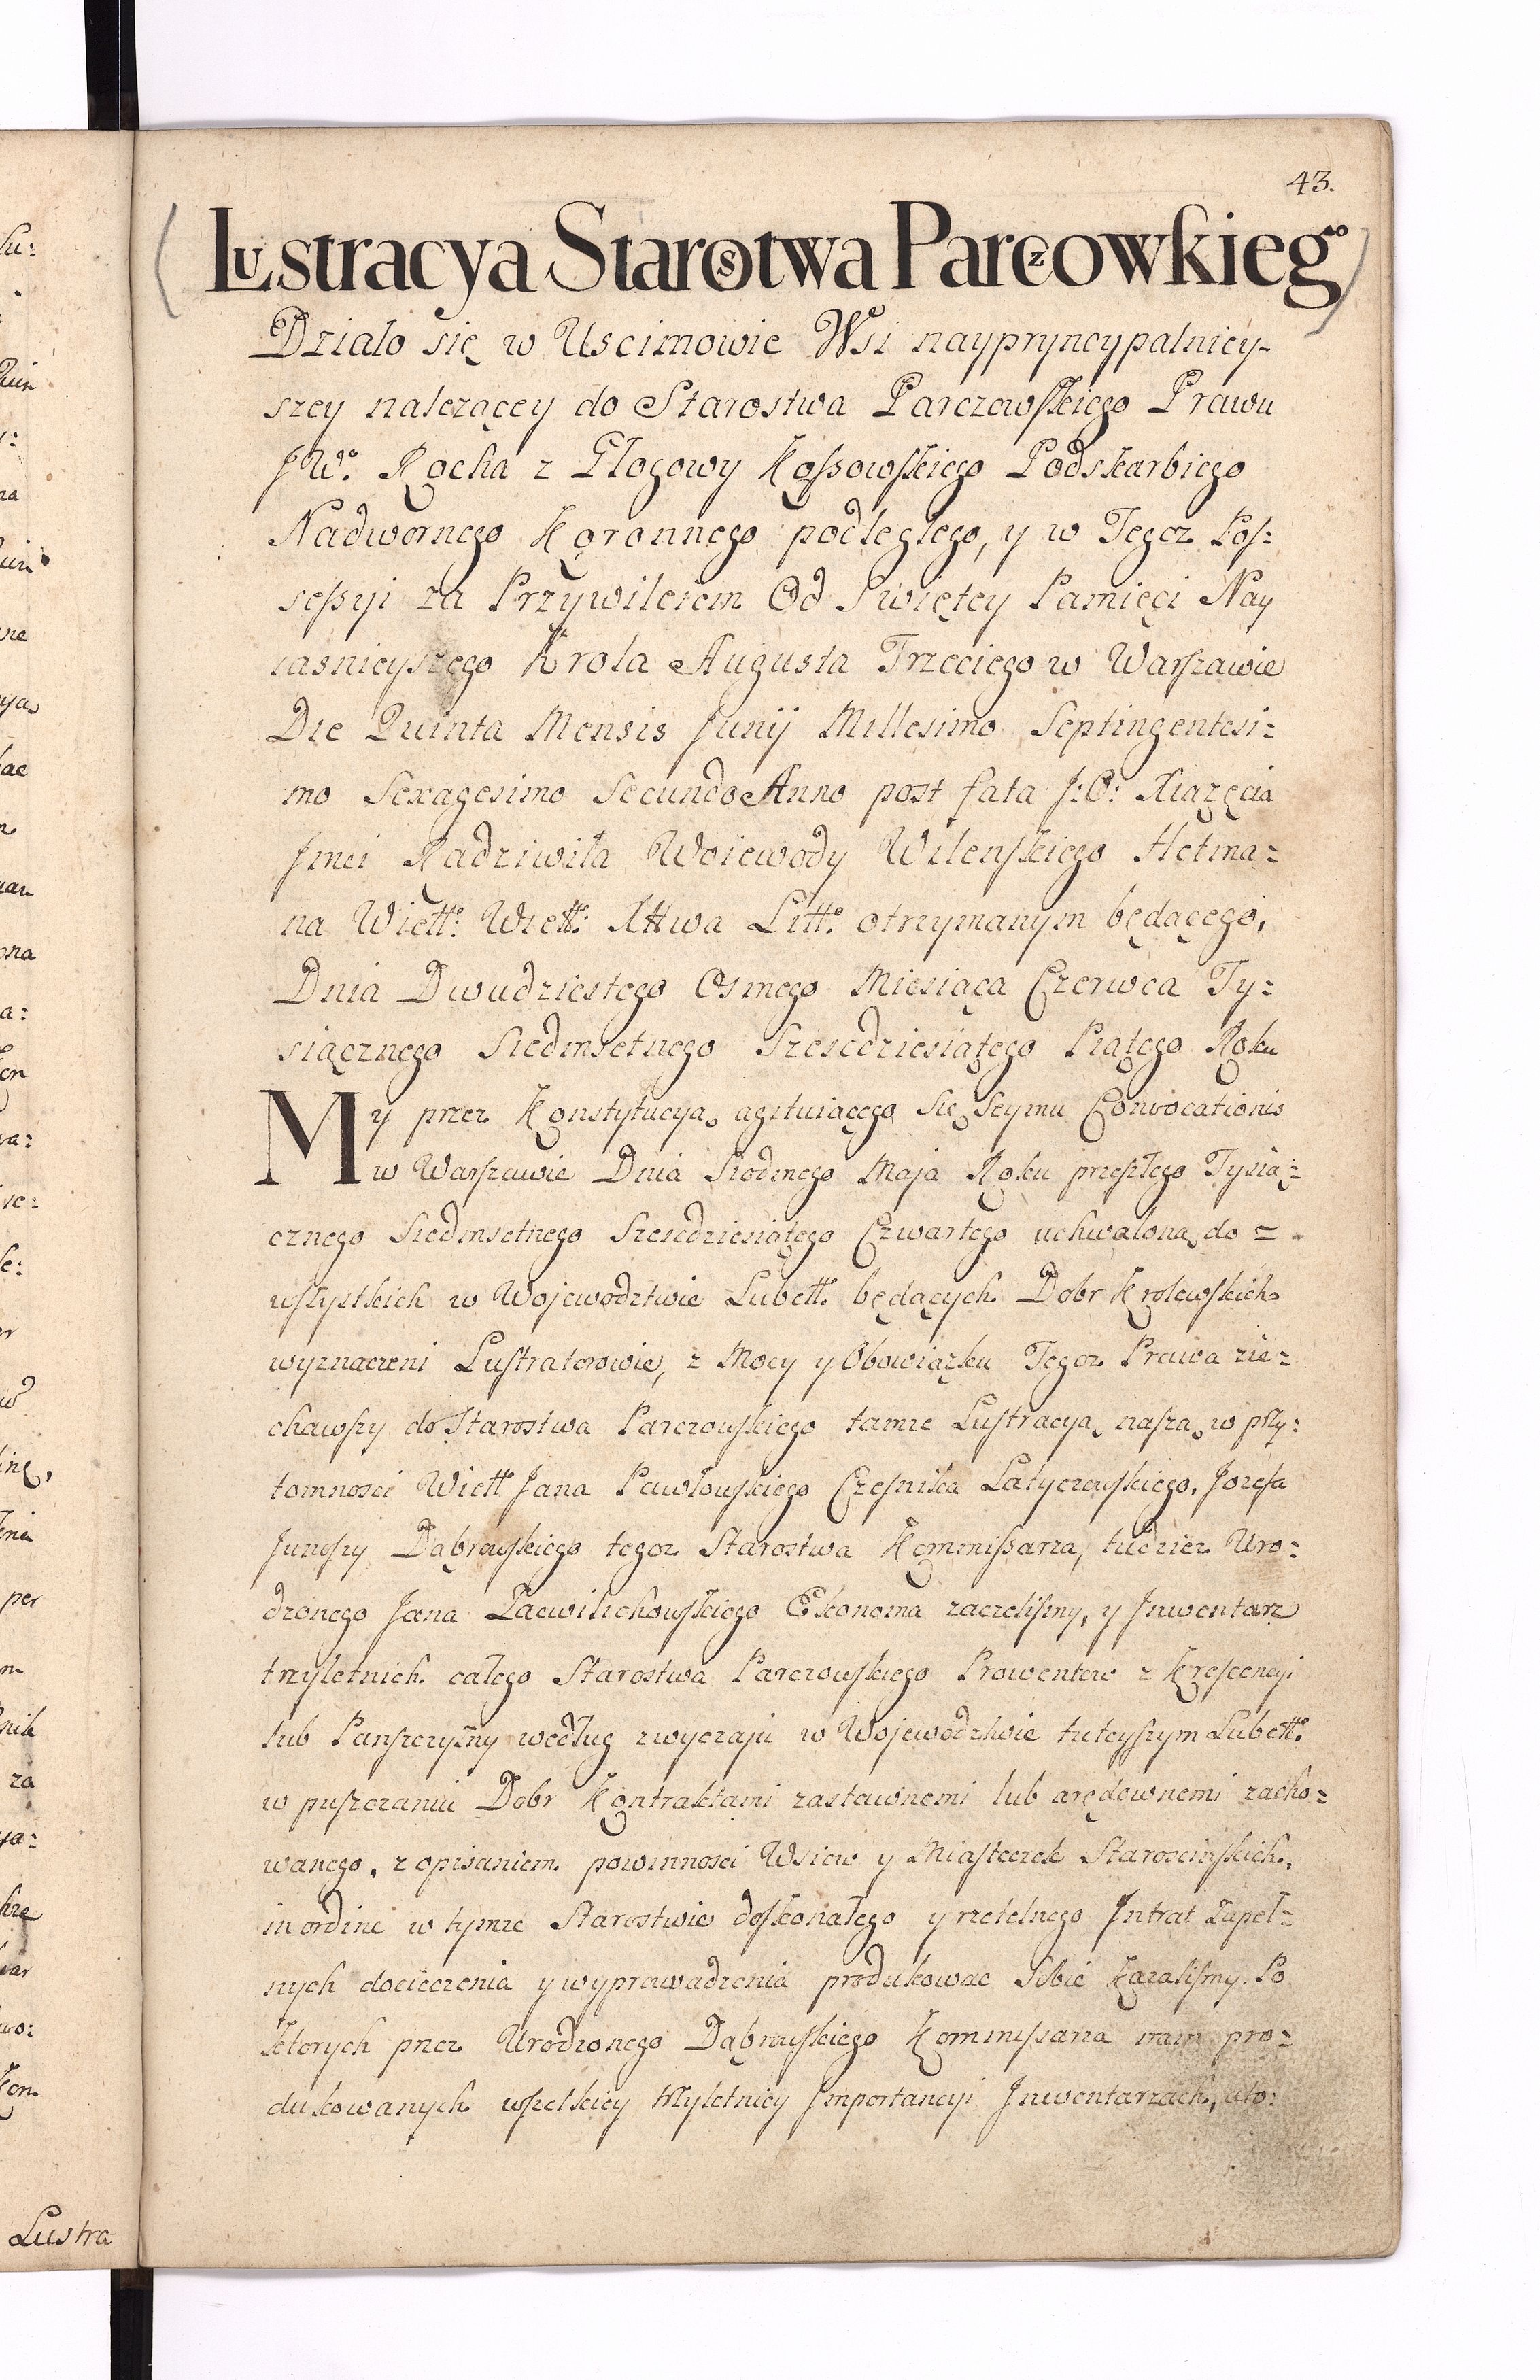 43.
Lustracya Starostwa Parczowskieg°
Działo się w Uscimowie Wsi naypryncypalniey-
szey nalezącey do Starostwa Parczewskiego Prawu
JW°. Rocha z Głogowy Kossowskiego Podskarbiego
Nadwornego Koronnego podległego, y w Tegoz Pos:
sessyi za Przywileiem Od Swiętey Pamięci Nay
iasnieyszego Krola Augusta Trzeciego w Warszawie
Die Quinta Mensis Junij Millesimo Septingentesi:
mo Sexagesimo Secundo Anno post fata J:O: Xiązęcia
Jmci Radziwiła Woiewody Wilenskiego Hetma:
na Wiel°: Wiel: Xttwa Litt°. otrzymanym będącego,
Dnia Dwudziestego Osmego Miesiąca Czerwca Ty:
siącznego Siedmsetnego Szescdziesiątego Piątego Roku
My przez Konstytucyą agituiącego się Seymu Convocationis
w Warszawie Dnia Siodmego Maja Roku przeszłego Tysią:
cznego Siedmsetnego Szescdziesiątego Czwartego uchwaloną do =
wszystkich w Wojewodztwie Lubell. będących Dobr Krolewskich
wyznaczeni Lustratorowie, z Mocy y Obowiązku Tegoz Prawa zie:
chawszy do Starostwa Parczowskiego tamze Lustracyą naszą w przy:
tomnosci Wiel° Jana Pawłowskiego Czesnika Latyczewskiego, Jozefa
Junoszy Dąbrowskiego tegoz Starostwa Kommissarza, tudziez Uro:
dzonego Jana Zacwilichowskiego Ekonoma zaczelismy, y Inwentarz
trzyletnich całego Starostwa Parczowskiego Prowentow z Krescencyi
lub Panszczyzny według zwyczaju w Wojewodztwie tuteyszym Lubell°.
w puszczaniu Dobr Kontraktami zastawnemi lub arędownemi zacho:
wanego, z opisaniem powinnosci Wsiow y Miasteczek Staroscinskich,
in ordine w tymze Starostwie doskonałego y rzetelnego Intrat Zupeł:
nych docieczenia y wyprowadzenia produkowac Sobie Kazalismy. Po
ktorych przez Urodzonego Dąbrowskiego Kommissarza nam pro:
dukowanych wszelkiey trzyletniey Importancyi Inwentarzach, uło:
Lustra